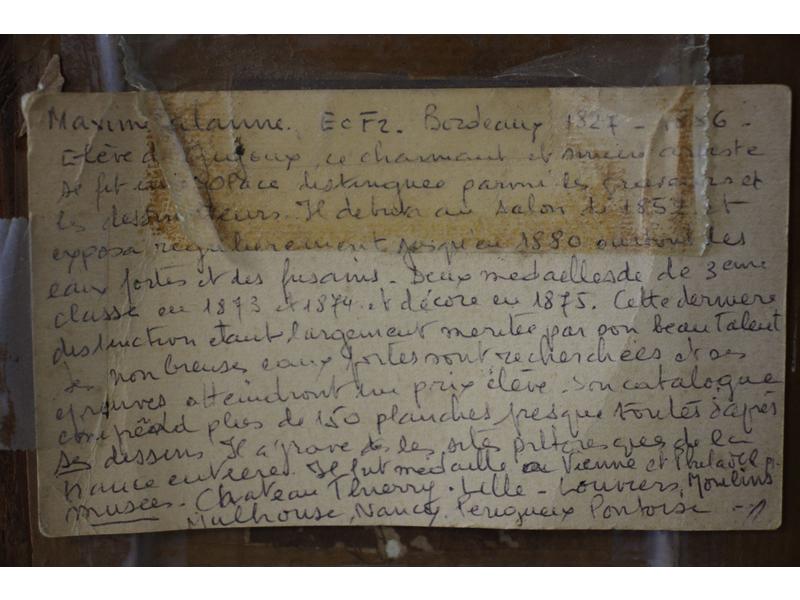 Maxime Lalanne. Ec Fr. Bordeaux 1827 - 1886 -
Elève de Gigoux, ce charmant et sincère artiste
se fit une place distinguée parmi les graveurs et
les dessinateurs. Il debuta au salon de 1852 et
exposa regulierement jusqu'en 1880 surtout des
eaux fortes et des fusains. Deux medailles de de 3eme
classe en 1873 et 1874 et décoré en 1875. Cette derniere
distinction etant largement meritée par son beau talent
Ses nombreuses eaux fortes sont recherchées et ses
epreuves atteindront un prix élevé. Son catalogue
comprend plus de 150 planches presque toutes d'après
ses dessins Il a gravé les sites pittoresques de la
France entiere. Il fut medaille a Vienne et Philadelp.
musees - Chateau Thierry. Lille - Louviers, Moulins
Mulhouse, Nancy. Perigueux Pontoise